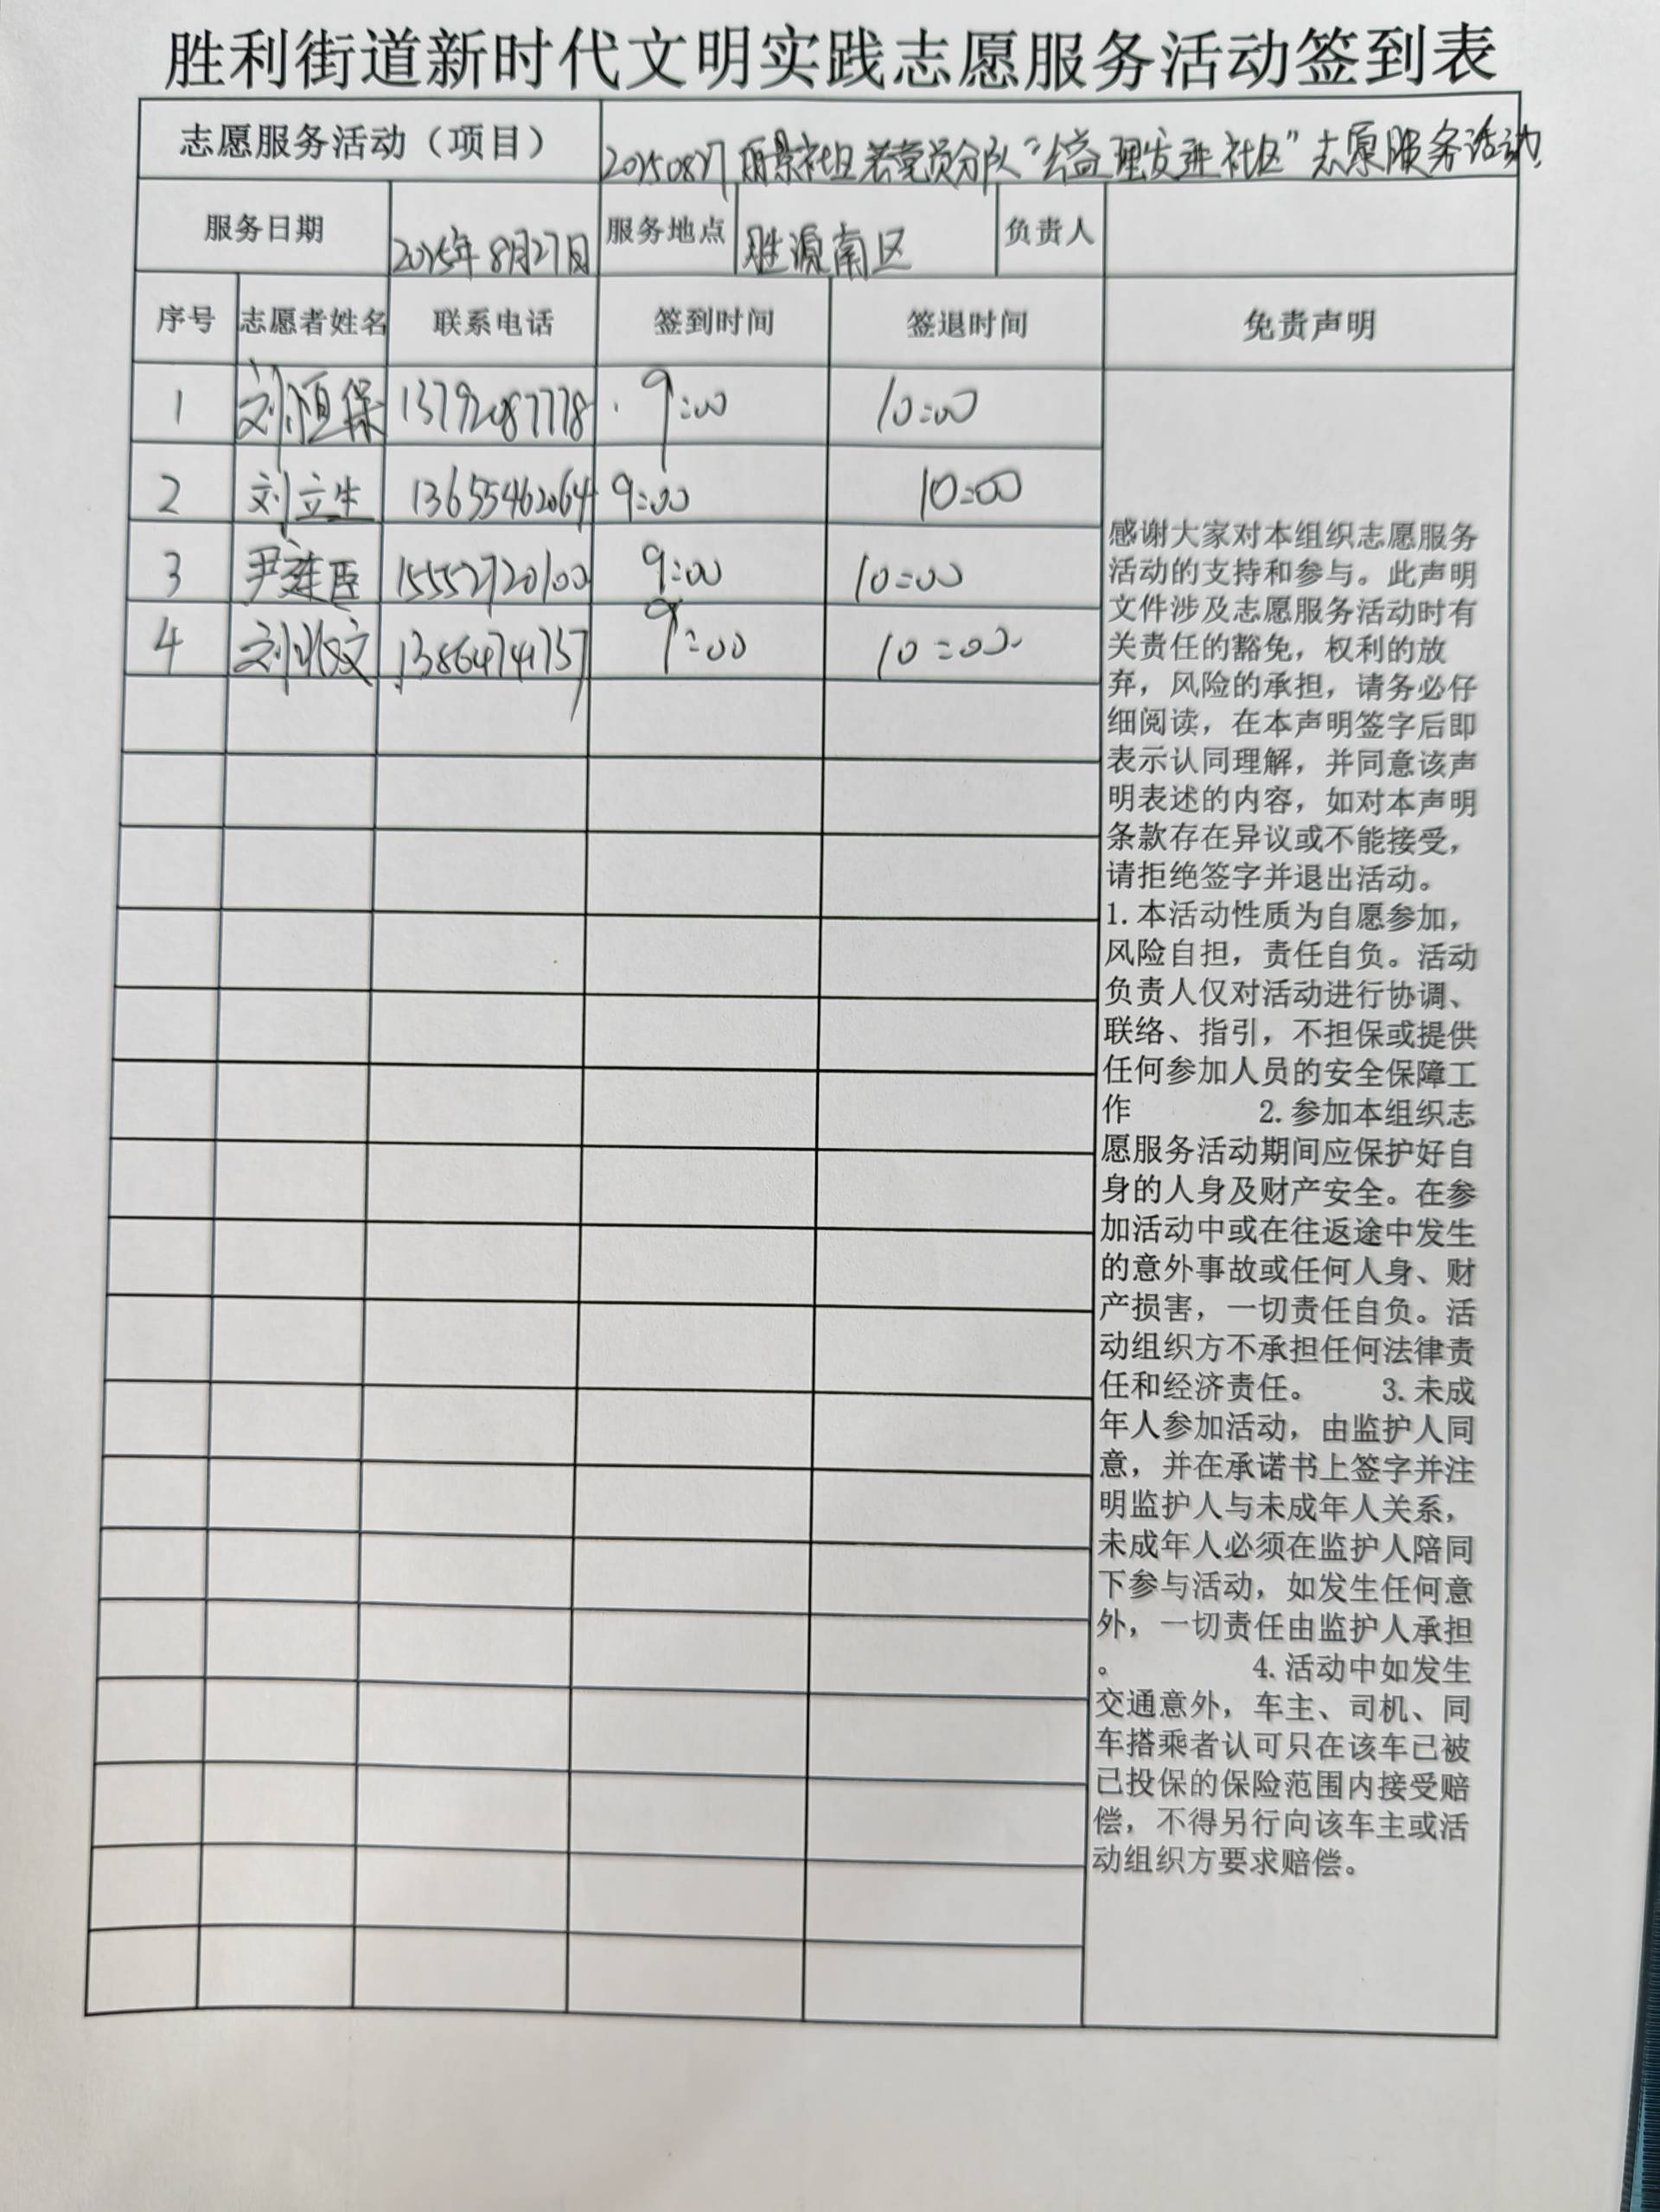 胜利街道新时代文明实践志愿服务活动签到表
志愿服务活动（项目） 20250827丽景社区老党员分队“公益理发进社区”志愿服务活动
服务日期 2025年8月27日 服务地点 胜源南区 负责人
序号 志愿者姓名 联系电话 签到时间 签退时间 免责声明
1 刘恒保 13792087778 9:00 10:00
2 刘立生 13655462064 9:00 10:00
3 尹莲臣 15552720100 9:00 10:00
4 刘文 13864741757 9:00 10:00
感谢大家对本组织志愿服务
活动的支持和参与。此声明
文件涉及志愿服务活动时有
关责任的豁免，权利的放
弃，风险的承担，请务必仔
细阅读，在本声明签字后即
表示认同理解，并同意该声
明表述的内容，如对本声明
条款存在异议或不能接受，
请拒绝签字并退出活动。
1.本活动性质为自愿参加，
风险自担，责任自负。活动
负责人仅对活动进行协调、
联络、指引，不担保或提供
任何参加人员的安全保障工
作 2.参加本组织志
愿服务活动期间应保护好自
身的人身及财产安全。在参
加活动中或在往返途中发生
的意外事故或任何人身、财
产损害，一切责任自负。活
动组织方不承担任何法律责
任和经济责任。 3.未成
年人参加活动，由监护人同
意，并在承诺书上签字并注
明监护人与未成年人关系，
未成年人必须在监护人陪同
下参与活动，如发生任何意
外，一切责任由监护人承担
。 4.活动中如发生
交通意外，车主、司机、同
车搭乘者认可只在该车已被
已投保的保险范围内接受赔
偿，不得另行向该车主或活
动组织方要求赔偿。